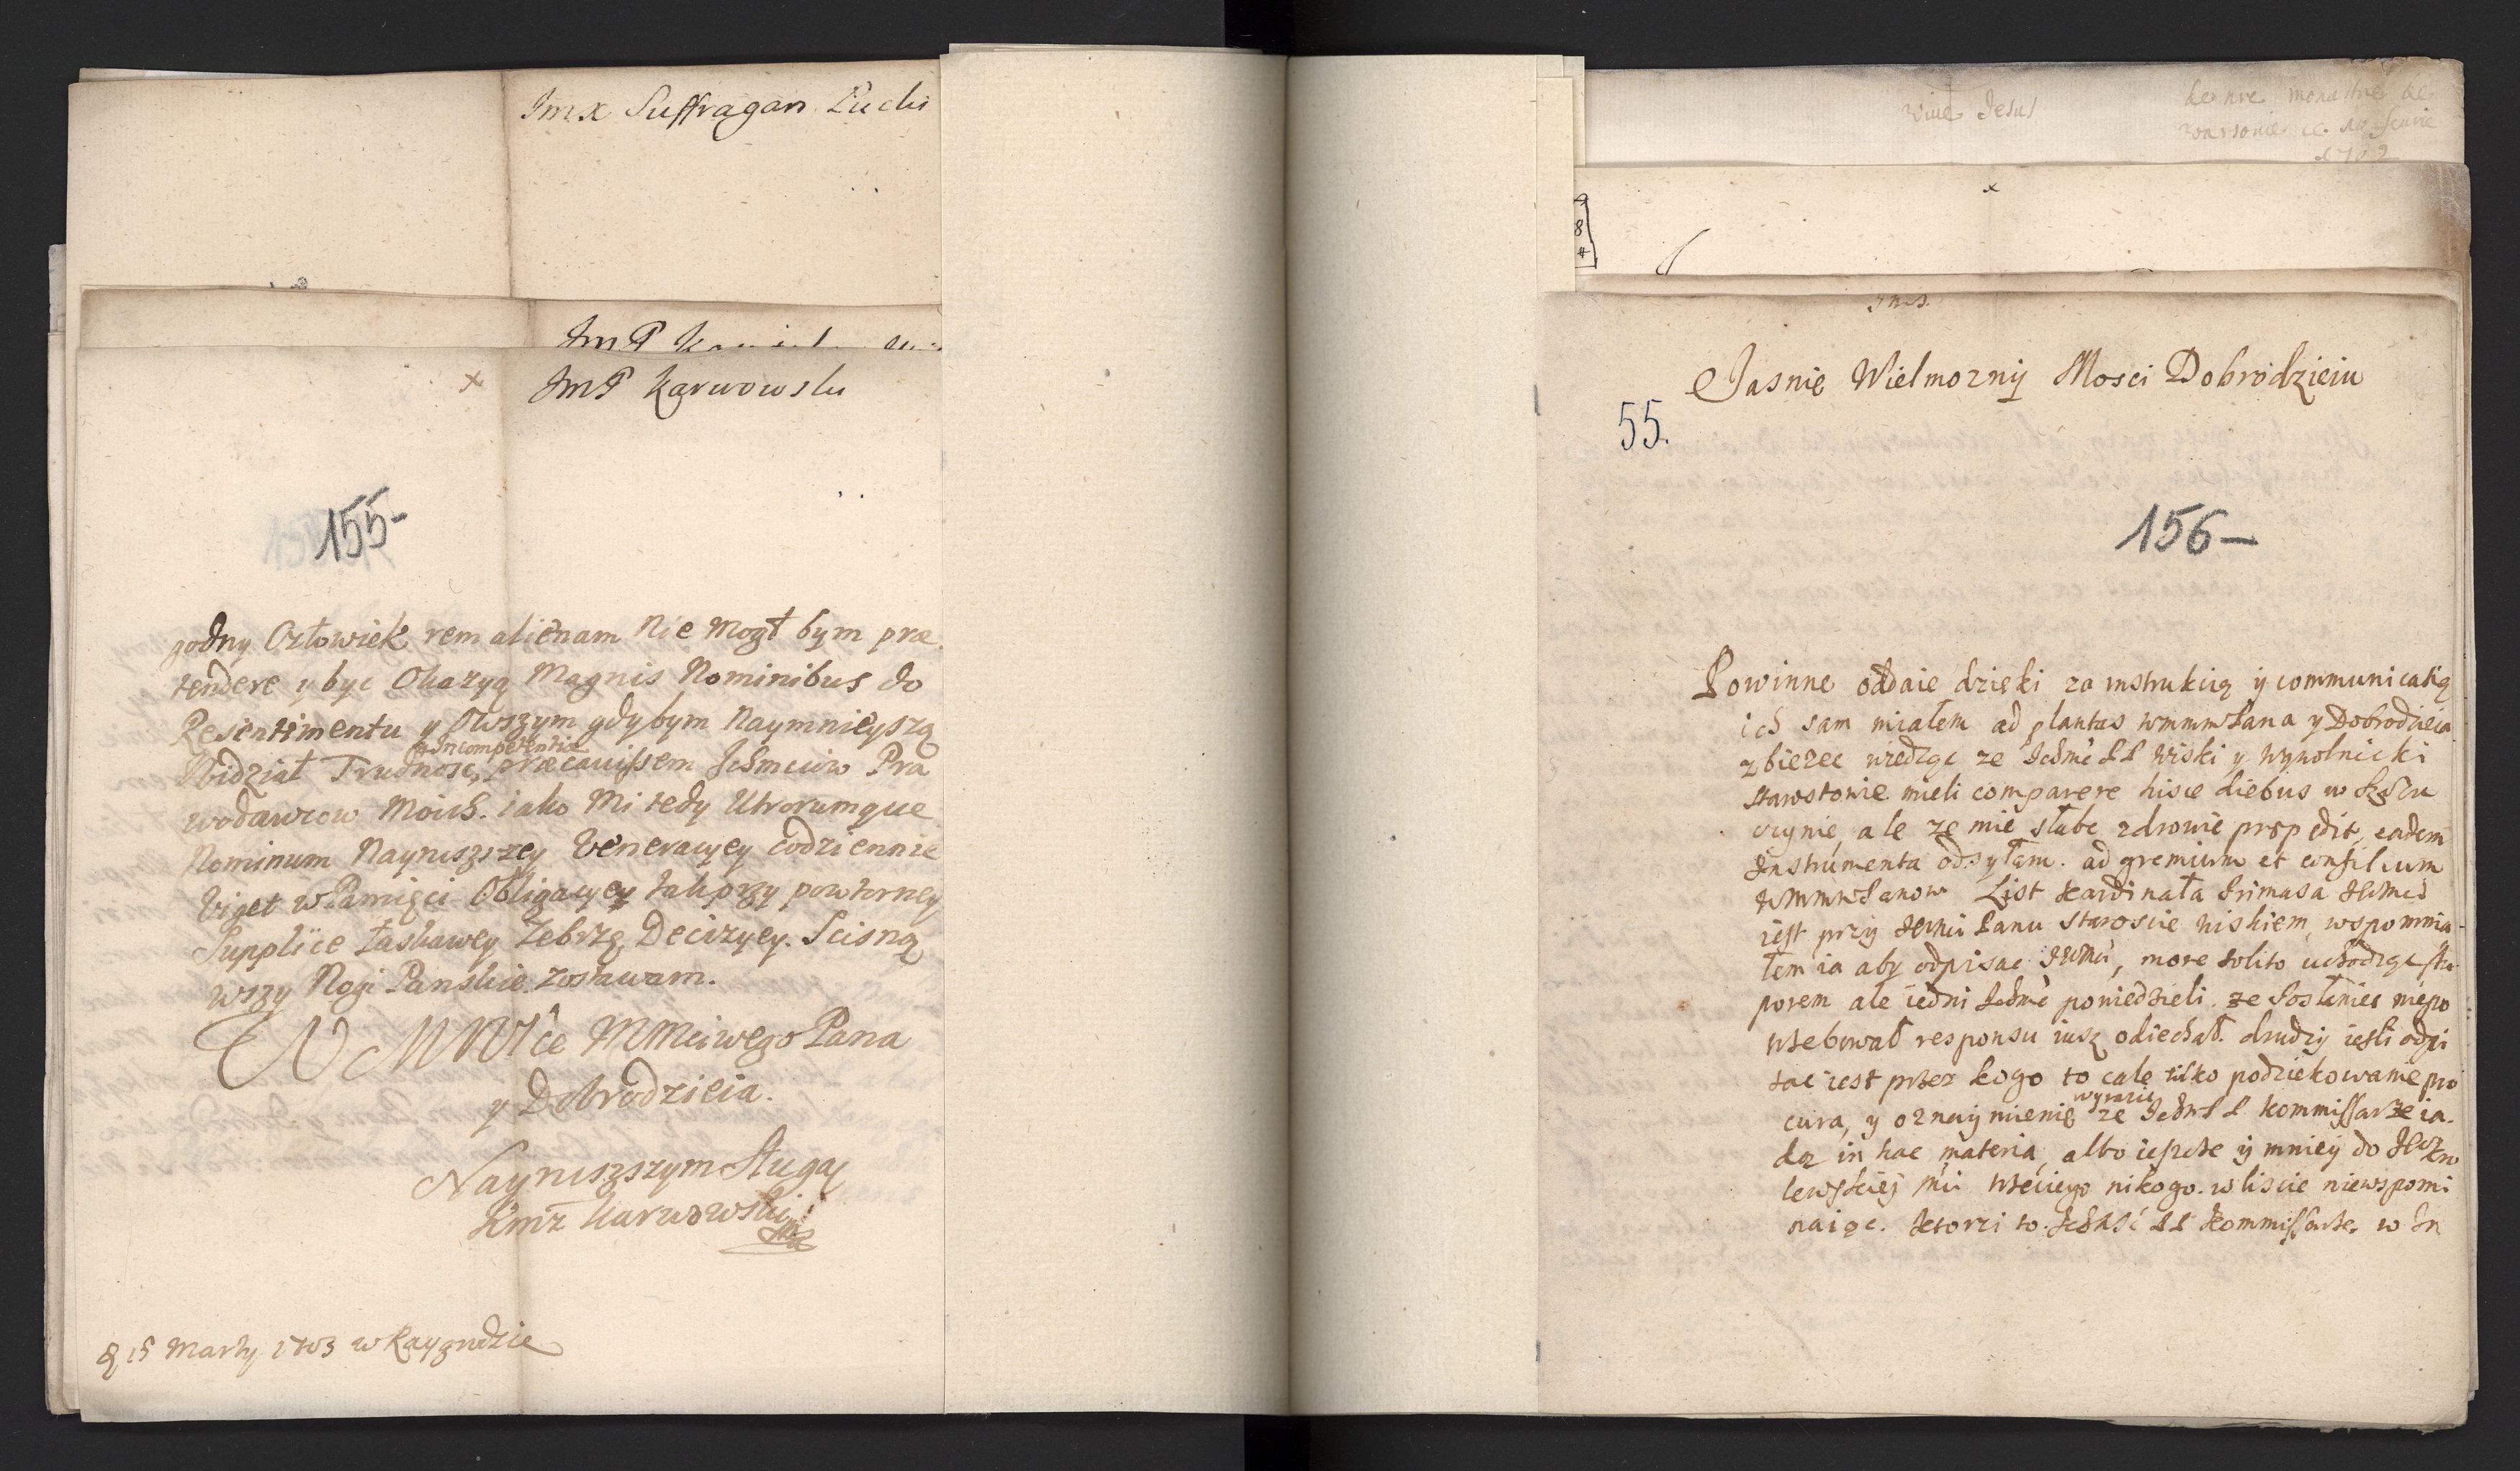 Imx Suffragan Lucki
ImP
x ImP Karwowski
155-
godny Człowiek rem alienam Nie Mogł bym præ
tendere y byc Okazyą Magnis Nominibus do
Resentimentu y Owszym gdy bym Naymnieyszą
Widział Trudnosc, præcavissem Ichmciow Pra
incompetentia
wodawcow Moich. iako Mi tedy Utrorumque
Nominum Nayniszszey Veneracyey codziennie
Viget w Pamięci Obligacyey tak przy powtorney
Supplice Łaskawey Żebrzę Decizyey. Scisną
wszy Nogi Panskie zostawam.
W M M Mciwego Pana
y Dobrodzieia.
Nayniszszym Sługą
Karwowski
15 Marty 1703 w Raygrodzie
Vive Jesus
de nre monastre de
1702
8
4
x
Jasnie Wielmozny Mosci Dobrodzieiu
55.
156-
Powinne oddaie dzięki za instrukcią y communicatią
ich sam miałem ad plantas wmmwPana y Dobrodzieia
zbiezec wiedząc ze Ichmc PP Wiski y Wynolnicki
Starostowie mieli comparere hisce diebus w
ale ze mie słabe zdrowie prepedit, eadem
Instrumenta odsyłam. ad gremium et consilium
wmmwPanow List Kardinała Primasa
iest przy Panu Staroscie niskiem, wspomnia-
łem ia aby odpisac, more solito uchodząc
porem ale iedni Ichmc powiedzieli ze Posłaniec niepo
trzebował responsu iusz odiechał. drudzy iesli odpi
sac iest przez kogo to cale tilko podziekowanie pro
cura, y oznaymienie ze PP kommissarze ia-
wyrazic
dą in hac materia, albo ieszcze y mniey do
lewskiej trzeciego nikogo w liscie niewspomi
naiąc. Ktorzi to PP Kommissarze, w In